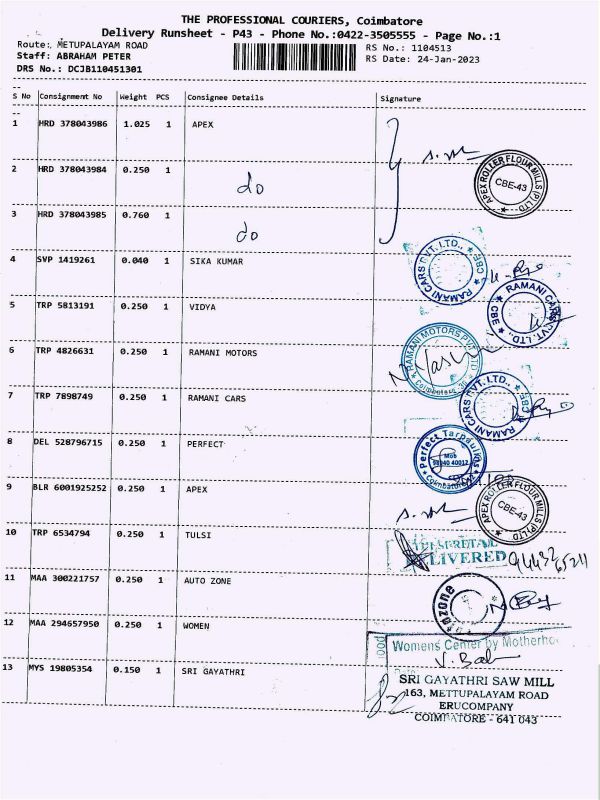 THE PROFESSIONAL COURIERS, Coimbatore
Delivery Runsheet - P43 - Phone No.:0422-3505555 - Page No.:1
Route: METUPALAYAM ROAD
Staff: ABRAHAM PETER
DRS No.: DCJB110451301
RS No.: 1104513
RS Date: 24-Jan-2023
S No Consignment No Weight PCS Consignee Details Signature
1 HRD 378043986 1.025 1 APEX
2 HRD 378043984 0.250 1 do
APEX ROLLER FLOUR MILLS (P) LTD CBE-43
3 HRD 378043985 0.760 1 do
4 SVP 1419261 0.040 1 SIKA KUMAR
RAMANI CARS PVT. LTD., CBE
5 TRP 5813191 0.250 1 VIDYA
RAMANI CARS PVT. LTD., CBE
6 TRP 4826631 0.250 1 RAMANI MOTORS
RAMANI MOTORS Coimbatore
7 TRP 7898749 0.250 1 RAMANI CARS
RAMANI CARS PVT. LTD., CBE
8 DEL 528796715 0.250 1 PERFECT
Perfect Tarpaulins Mob 98940 40012 Coimbatore
9 BLR 6001925252 0.250 1 APEX
APEX ROLLER FLOUR MILLS (P) LTD CBE-43
10 TRP 6534794 0.250 1 TULSI
11 MAA 300221757 0.250 1 AUTO ZONE
12 MAA 294657950 0.250 1 WOMEN
Womens Center by Motherhoo
13 MYS 19805354 0.150 1 SRI GAYATHRI
SRI GAYATHRI SAW MILL
163, METTUPALAYAM ROAD
ERUCOMPANY
COIMBATORE - 641 043